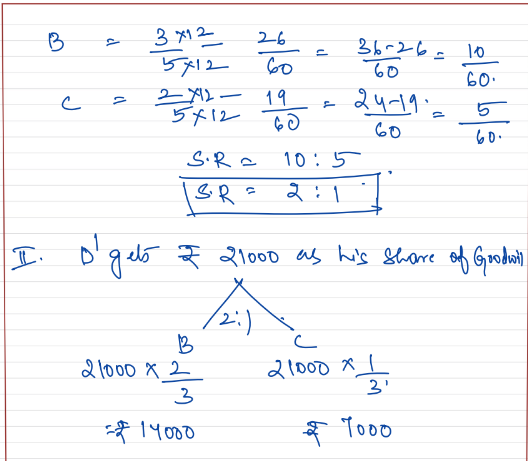 B = 3×12/5×12 - 26/60 = 36-26/60 = 10/60.
C = 2×12/5×12 - 19/60 = 24-19/60 = 5/60.
S.R = 10:5
S.R = 2:1
II. D' gets ₹ 21000 as his share of Goodwill
2:1
B C
21000 × 2/3 21000 × 1/3
=₹ 14000 ₹ 7000